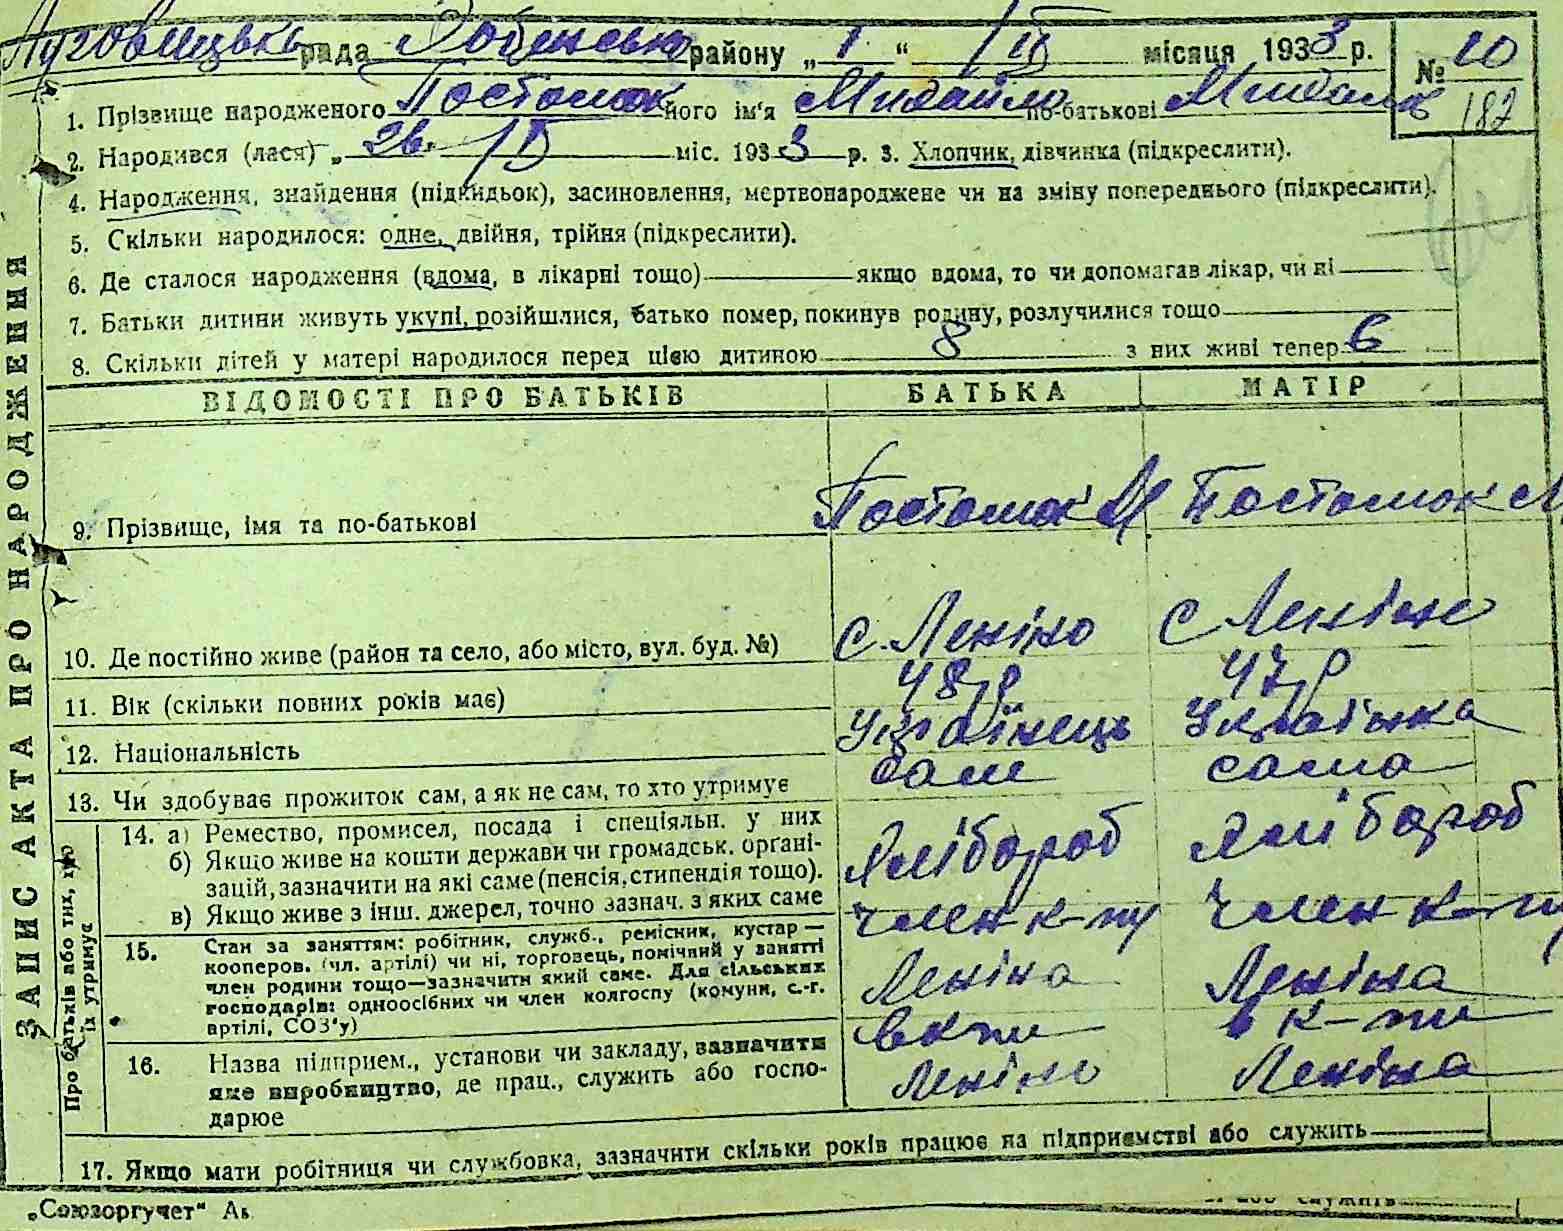 рада району „ 1 “ / IV місяця 1933 р.
№ 10
187
1. Прізвище народженого Постолюк його ім'я Михайло по-батькові
2. Народився (лася) „ 26. IV міс. 1933 р. 3. Хлопчик, дівчинка (підкреслити).
4. Народження, знайдення (підкидьок), засиновлення, мертвонароджене чи на зміну попереднього (підкреслити).
5. Скільки народилося: одне, двійня, трійня (підкреслити).
6. Де сталося народження (вдома, в лікарні тощо) якщо вдома, то чи допомагав лікар, чи ні
7. Батьки дитини живуть укупі, розійшлися, батько помер, покинув родину, розлучилися тощо
8. Скільки дітей у матері народилося перед цією дитиною 8 з них живі тепер 6
ЗАПИС АКТА ПРО НАРОДЖЕННЯ
ВІДОМОСТІ ПРО БАТЬКІВ БАТЬКА МАТІР
9. Прізвище, імя та по-батькові Постолюк М Постолюк М
10. Де постійно живе (район та село, або місто, вул. буд. №) с. Леніно с Леніно
11. Вік (скільки повних років має) 48 р 47 р
12. Національність Українець Українка
13. Чи здобуває прожиток сам, а як не сам, то хто утримує сам сама
Про батьків або тих, хто їх утримує
14. а) Ремество, промисел, посада і спеціяльн. у них
б) Якщо живе на кошти держави чи громадськ. органі-
зацій, зазначити на які саме (пенсія, стипендія тощо).
в) Якщо живе з інш. джерел, точно зазнач. з яких саме
Хлібороб Хлібороб
15. Стан за заняттям: робітник, служб., ремісник, кустар —
кооперов. (чл. артілі) чи ні, торговець, помічний у занятті
член родини тощо—зазначити який саме. Для сільських
господарів: одноосібних чи член колгоспу (комуни, с.-г.
артілі, СОЗ'у)
член к-ни член к-ни
Леніна Леніна
16. Назва підприєм., установи чи закладу, зазначити
яке виробництво, де прац., служить або госпо-
дарює
в к-ни
Леніна
17. Якщо мати робітниця чи службовка, зазначити скільки років працює на підприємстві або служить
„Союзоргучет“
служить